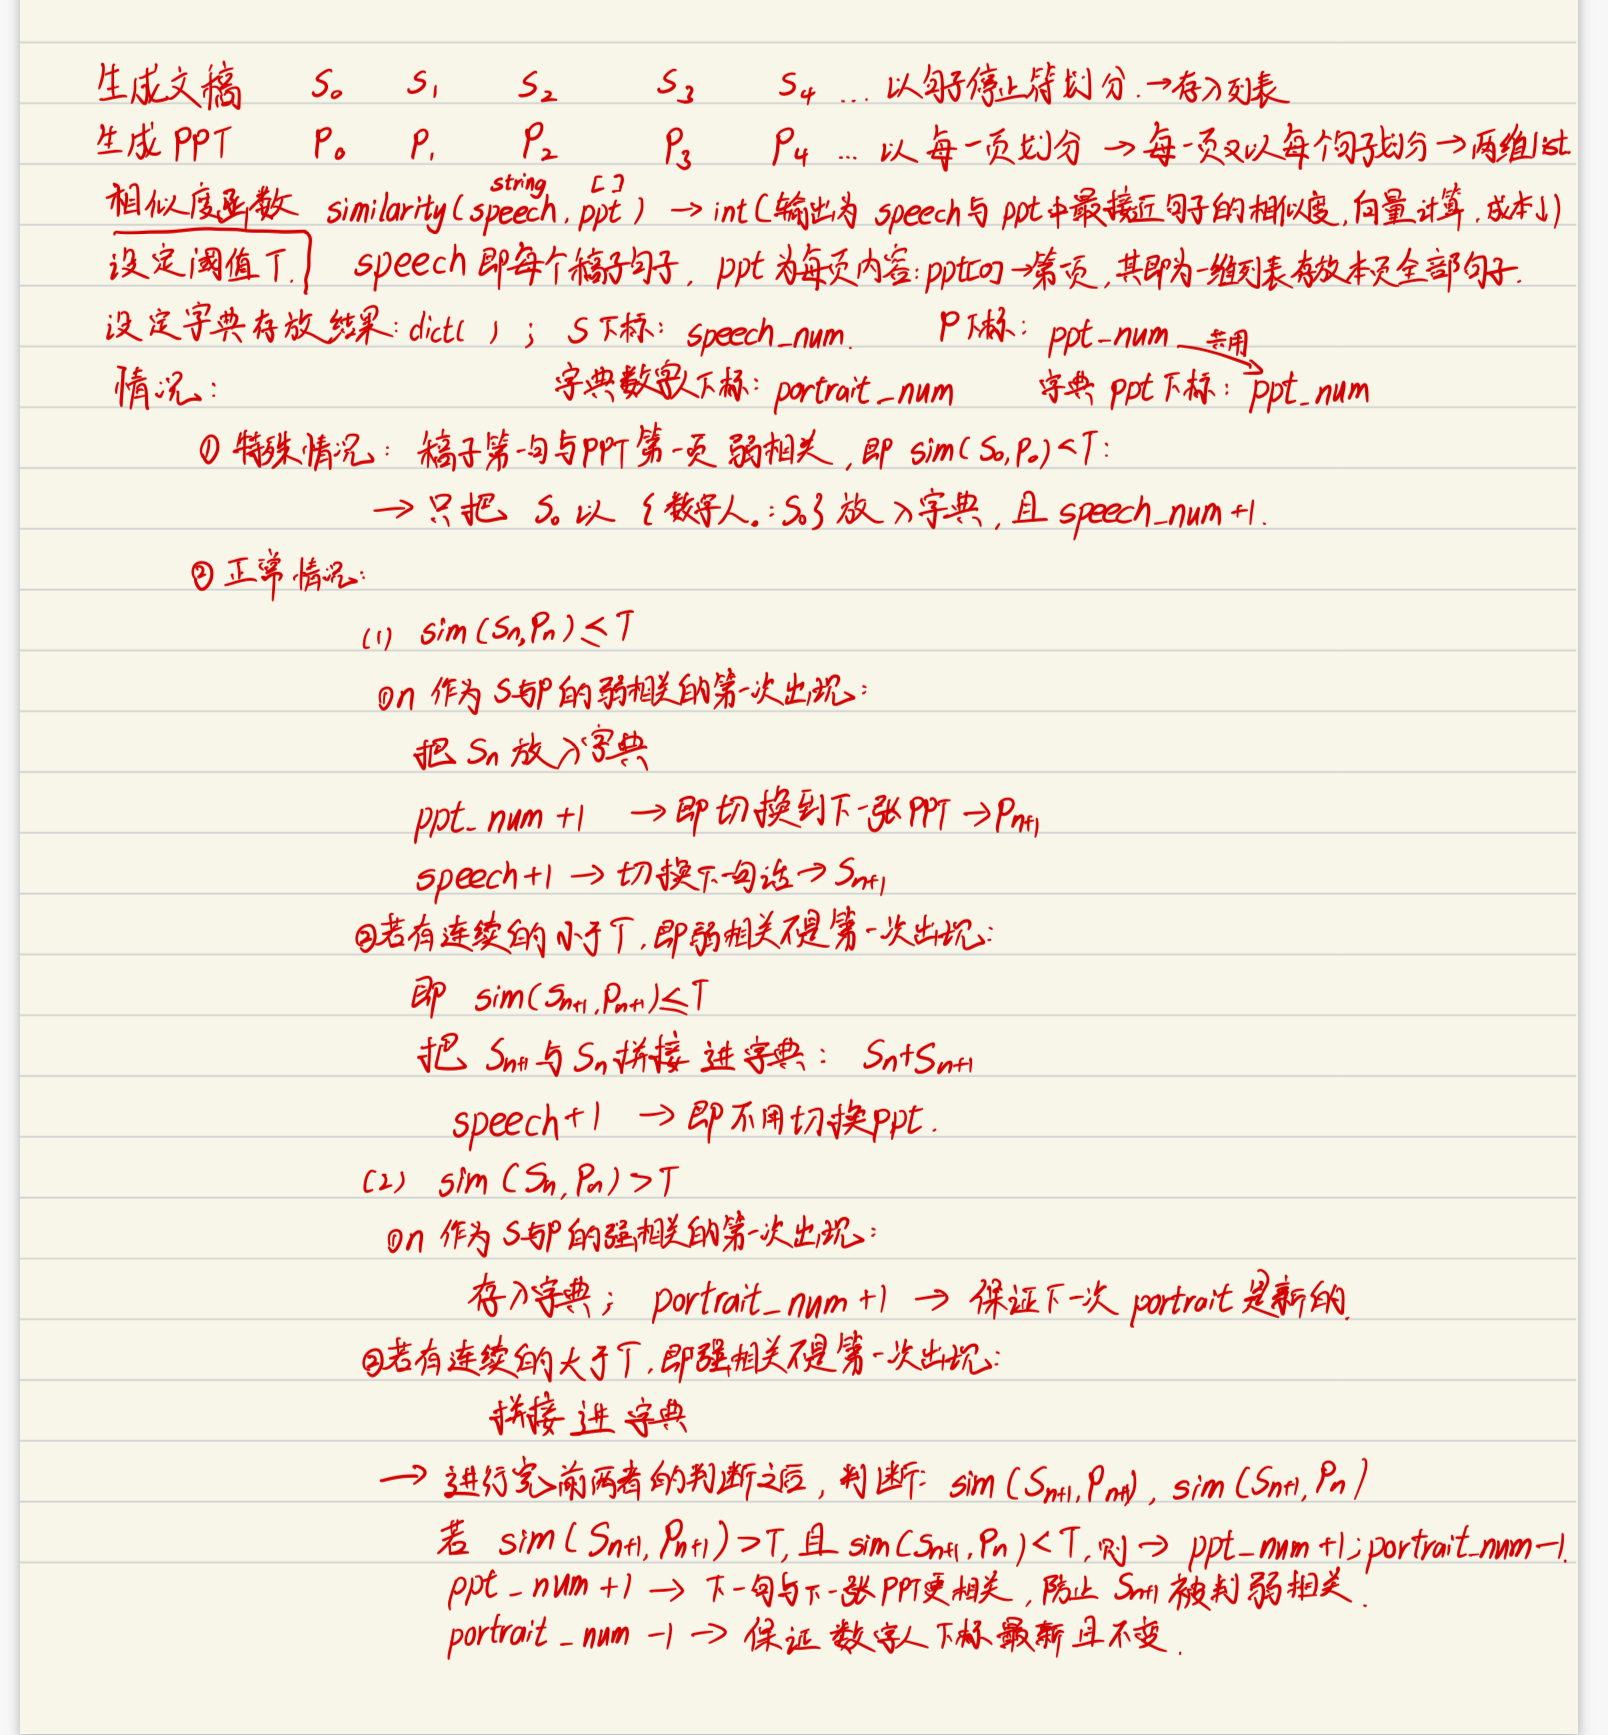 生成文稿 S₀ S₁ S₂ S₃ S₄ ... 以句子停止符划分.→存入列表
生成PPT P₀ P₁ P₂ P₃ P₄ ... 以每一页划分 → 每一页又以每个句子划分→两维list
string []
相似度函数 similarity(speech, ppt) → int(输出为 speech与ppt中最接近句子的相似度,向量计算,成本↓)
设定阈值T. speech即每个稿子句子, ppt为每页内容:ppt[0]→第一页,其即为一维列表存放本页全部句子.
设定字典存放结果:dict( ); S下标: speech_num. P下标: ppt_num 共用
情况: 字典数字人下标: portrait_num 字典ppt下标: ppt_num
① 特殊情况: 稿子第一句与PPT第一页弱相关,即 sim(S₀,P₀)<T:
→ 只把 S₀ 以 {数字人₀:S₀} 放入字典,且 speech_num+1.
② 正常情况:
(1) sim(Sn,Pn)≤T
①n 作为S与P的弱相关的第一次出现:
把 Sn 放入字典
ppt_num+1 →即切换到下一张PPT→Pn+1
speech+1 → 切换下一句话→Sn+1
②若有连续的小于T,即弱相关不是第一次出现:
即 sim(Sn+1,Pn+1)≤T
把 Sn+1与Sn拼接进字典: Sn+Sn+1
speech+1 → 即不用切换ppt.
(2) sim(Sn,Pn)>T
①n 作为S与P的强相关的第一次出现:
存入字典; portrait_num+1 → 保证下一次 portrait 是新的.
②若有连续的大于T,即强相关不是第一次出现:
拼接进字典
→ 进行完前两者的判断之后,判断: sim(Sn+1,Pn+1), sim(Sn+1,Pn)
若 sim(Sn+1,Pn+1)>T,且sim(Sn+1,Pn)<T,则→ ppt_num+1;portrait_num-1.
ppt_num+1 → 下一句与下一张PPT更相关,防止 Sn+1 被判弱相关.
portrait_num-1 → 保证数字人下标最新且不变.